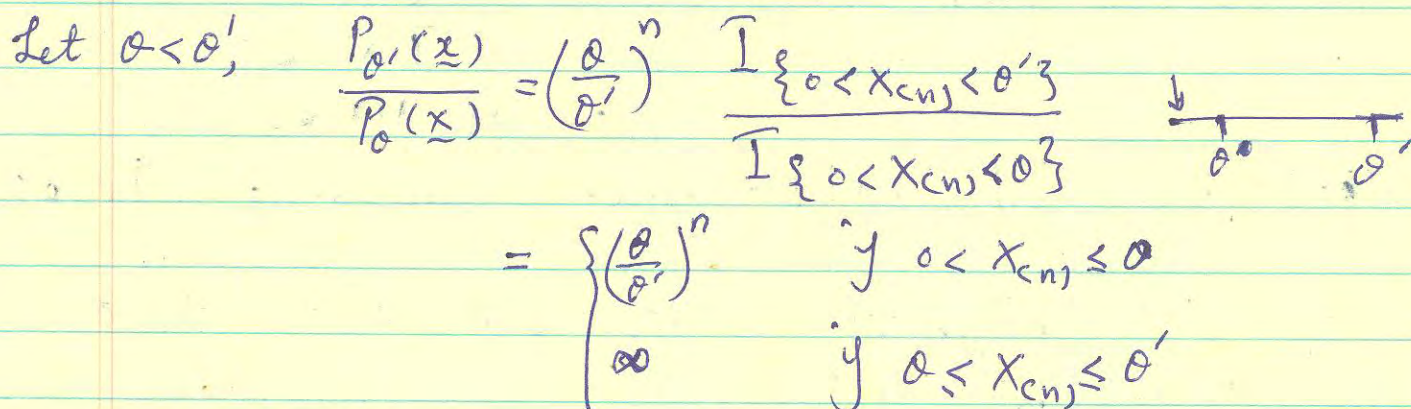 Let θ < θ', P_θ'(x̲) / P_θ(x̲) = (θ/θ')ⁿ I{0 < X₍ₙ₎ < θ'} / I{0 < X₍ₙ₎ < θ}
θ θ'
= { (θ/θ')ⁿ if 0 < X₍ₙ₎ ≤ θ
∞ if θ ≤ X₍ₙ₎ ≤ θ'